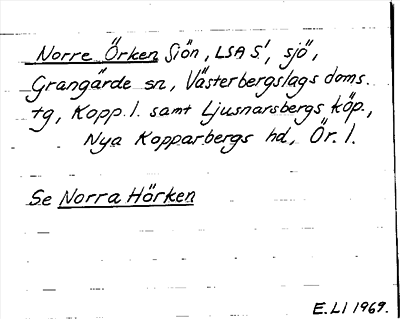 Norre Örken Siön, LSA S!, sjö,
Grangärde sn, Västerbergslags doms.
tg, Kopp. l. samt Ljusnarsbergs köp.,
Nya Kopparbergs hd, Ör. l.
Se Norra Hörken
E.LI 1969.